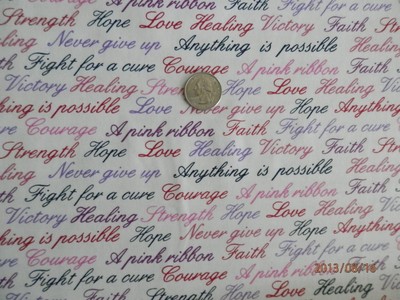 Strength Hope Love Healing Victory Faith
Healing Never give up Anything is possible H
Faith Fight for a cure Courage A pink ribbon
A pink ribbon Victory Healing Strength Hope Love
Anything is possible Love Never give up Hope
Hope Courage A pink ribbon Faith Fight for a c
Strength Hope Love Healing Victory Faith Str
Healing Never give up Anything is possible Heali
Faith Fight for a cure Courage A pink ribbon Fai
Victory Healing Strength Hope Love Healing
Anything is possible Hope Never give up Hope Any
Courage A pink ribbon Faith Fight for a cure
Strength Hope Love Healing Victory Faith
Never give up Anything is possible Healing
Fight for a cure Courage A pink ribbon Faith
2013/05/16